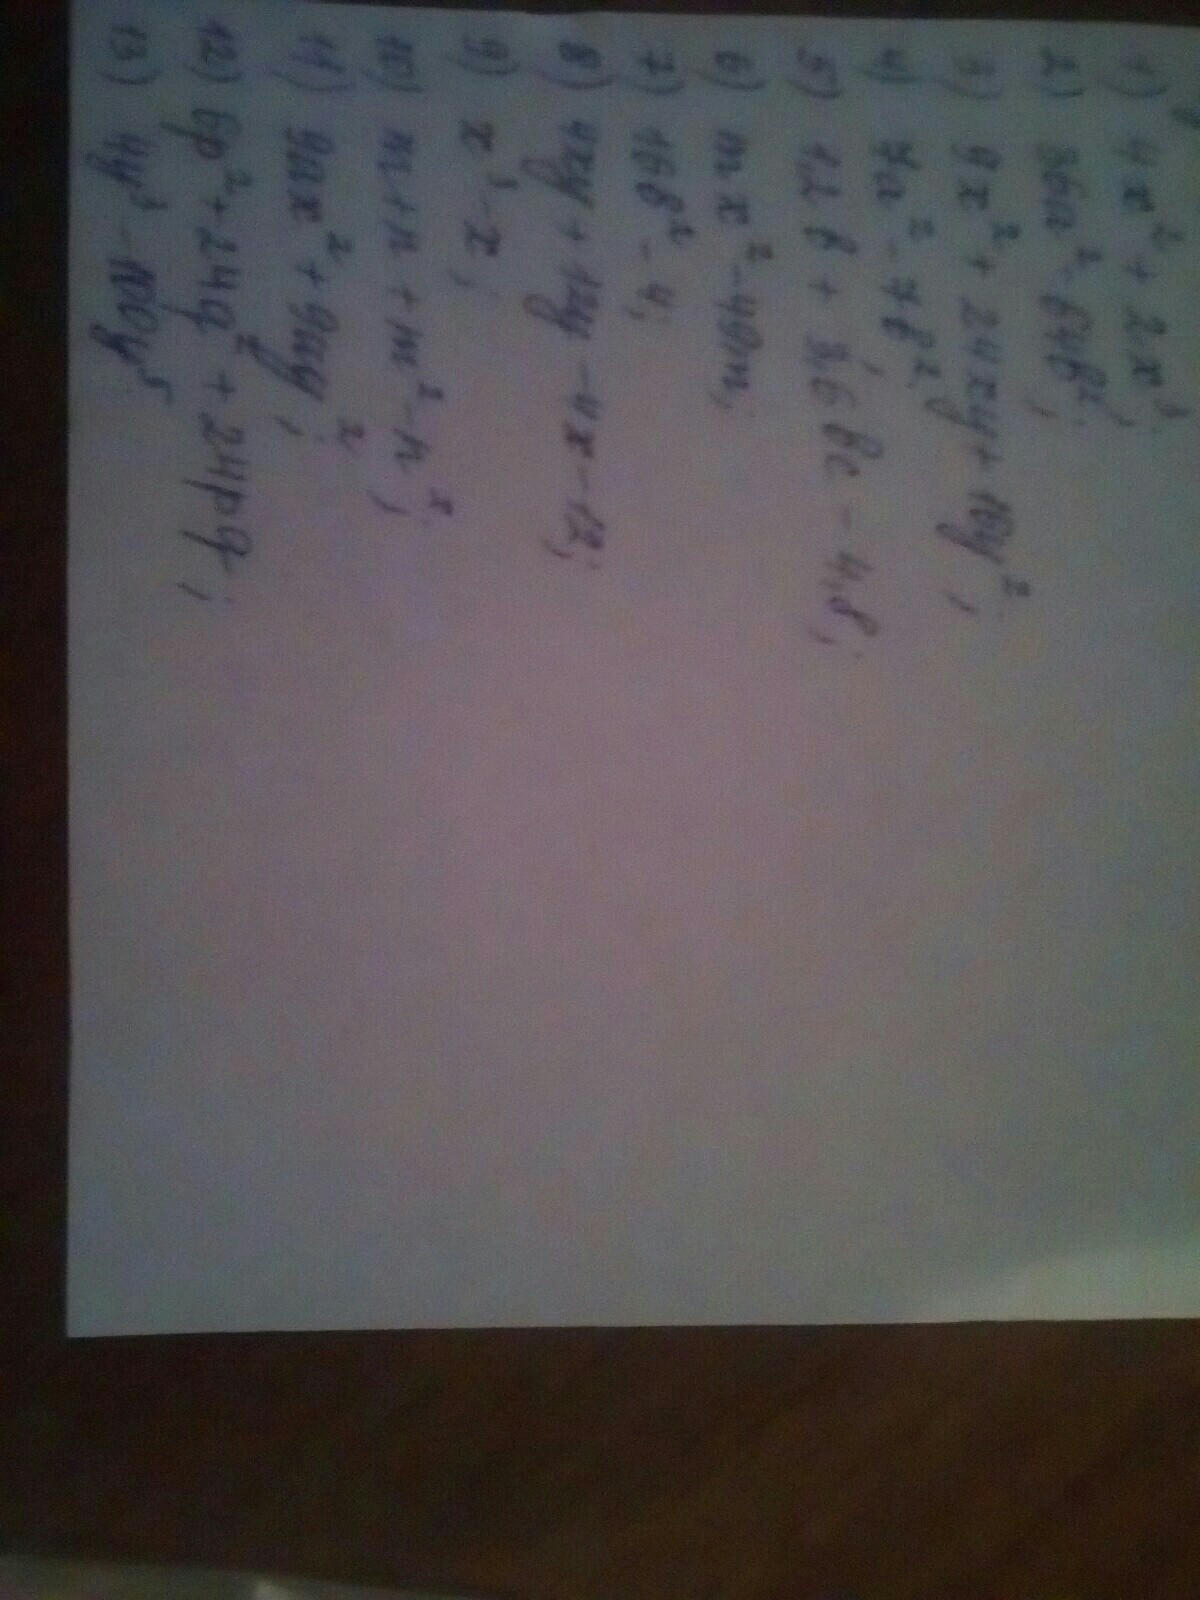 1) 4x² + 2x³;
2) 36a² - 64b²;
3) 9x² + 24xy + 16y²;
4) 7a² - 7b²;
5) 12b + 36bc - 48;
6) mx² - 49m;
7) 16b² - 4;
8) 4xy + 12y - 4x - 12;
9) x³ - x;
10) m + n + m² - n²;
11) 9ax² + 9ay²;
12) 6p² + 24q² + 24pq;
13) 4y³ - 100y⁵